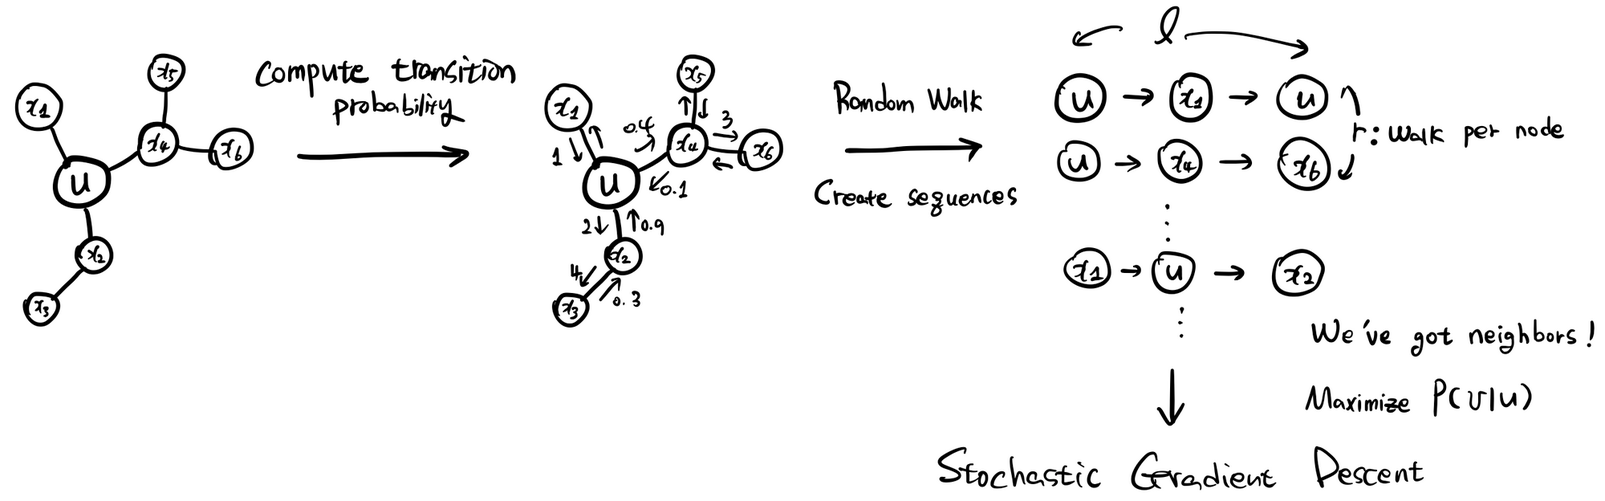 x5
x1
x4
x6
u
x2
x3
Compute transition
probability
x5
x1
0.4
3
x4
x6
1
u
0.1
2
0.9
x2
4
x3
0.3
Random Walk
Create sequences
l
u → x1 → u
r: Walk per node
u → x4 → x6
x1 → u → x2
We've got neighbors!
Maximize P(v|u)
Stochastic Gradient Descent